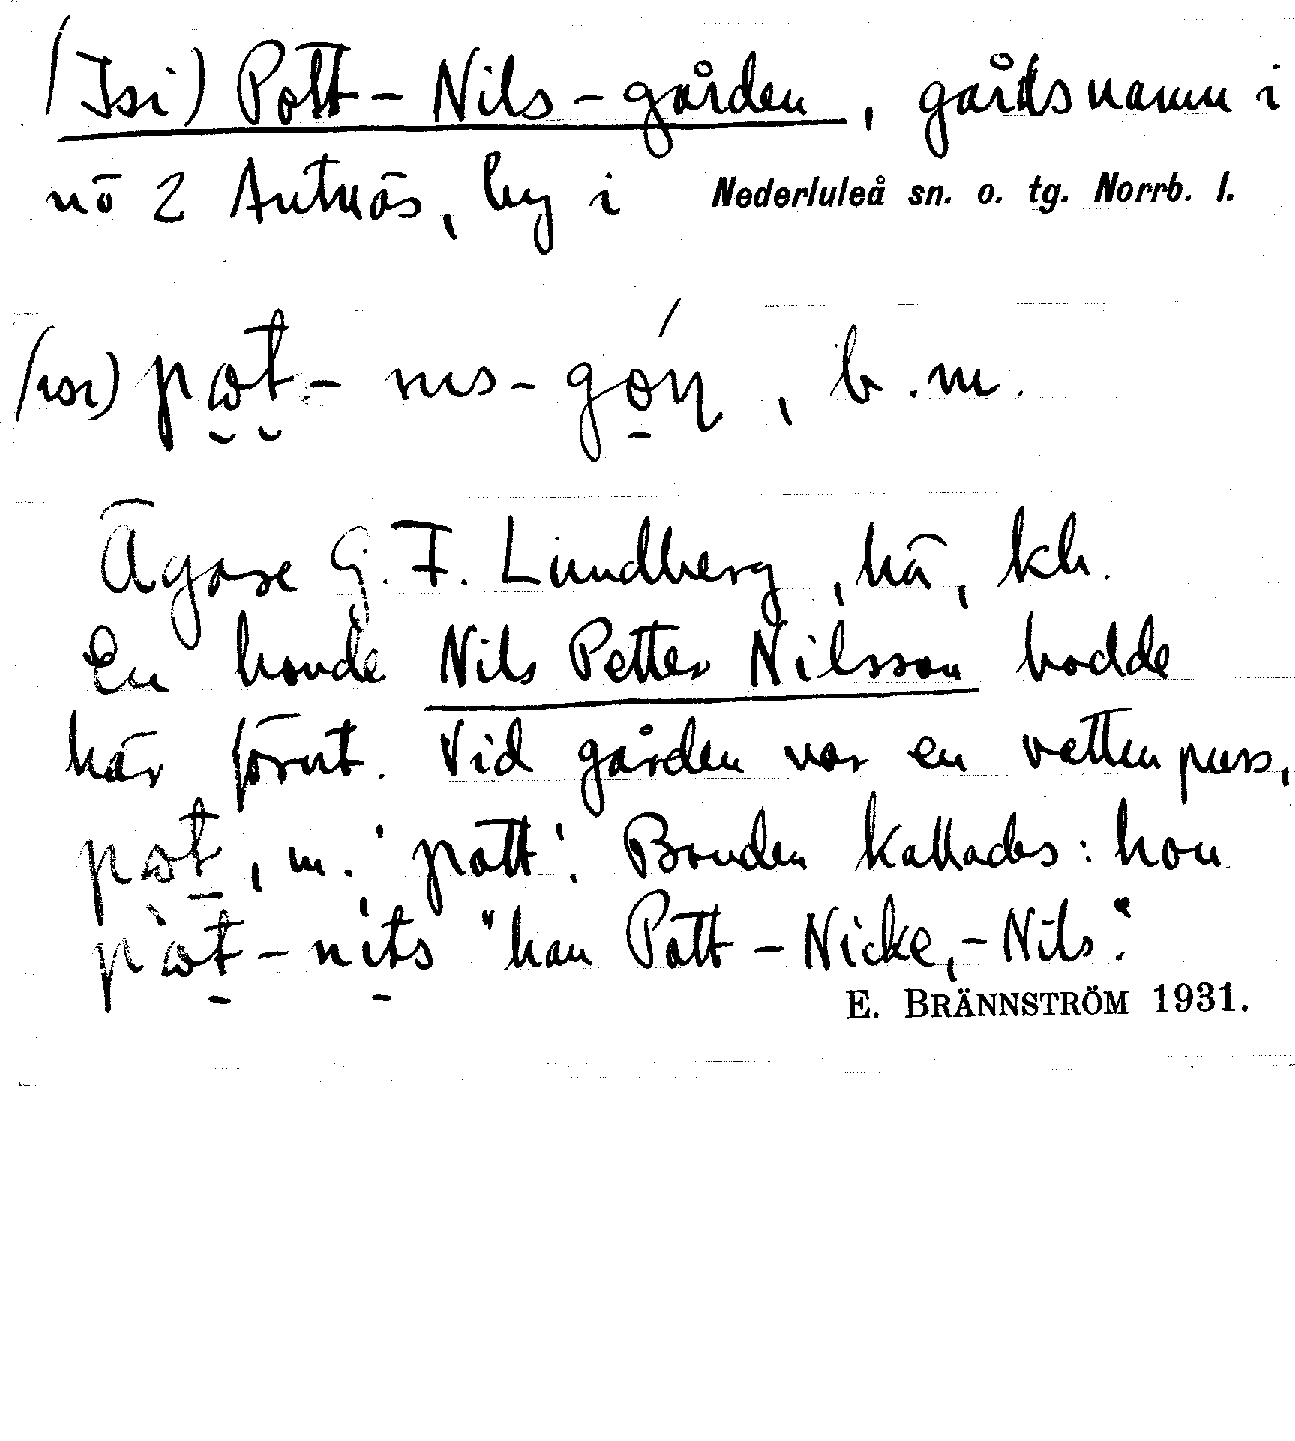 (Isi) Pott-Nils-gården, gårdsnamn i
nō 2 Antnäs, by i Nederluleå sn. o. tg. Norrb. l.
(ɪsɪ) pωt- nɪs- gón, b.m.
Ägare G. F. Lundberg, hä, kh.
En bonde Nils Petter Nilsson bodde
här förut. Vid gården var en vattenpuss,
pωt, m. 'pott'. Bonden kallades: hon
pὼt-nɪts "han Pott-Nicke, -Nils."
E. BRÄNNSTRÖM 1931.